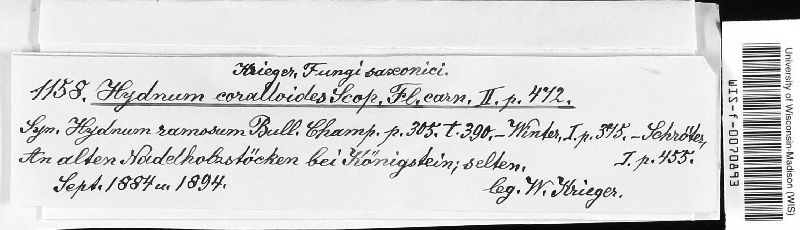 Krieger, Fungi saxonici.
1158. Hydnum coralloides Scop. Fl. carn. II. p. 472.
Syn. Hydnum ramosum Bull. Champ. p. 305. t. 390. – Winter, I. p. 375. – Schröter,
I. p. 455.
An alten Nadelholzstöcken bei Königstein; selten.
Sept. 1884 u. 1894.
leg. W. Krieger.
University of Wisconsin-Madison (WIS)
WIS-f-0070893